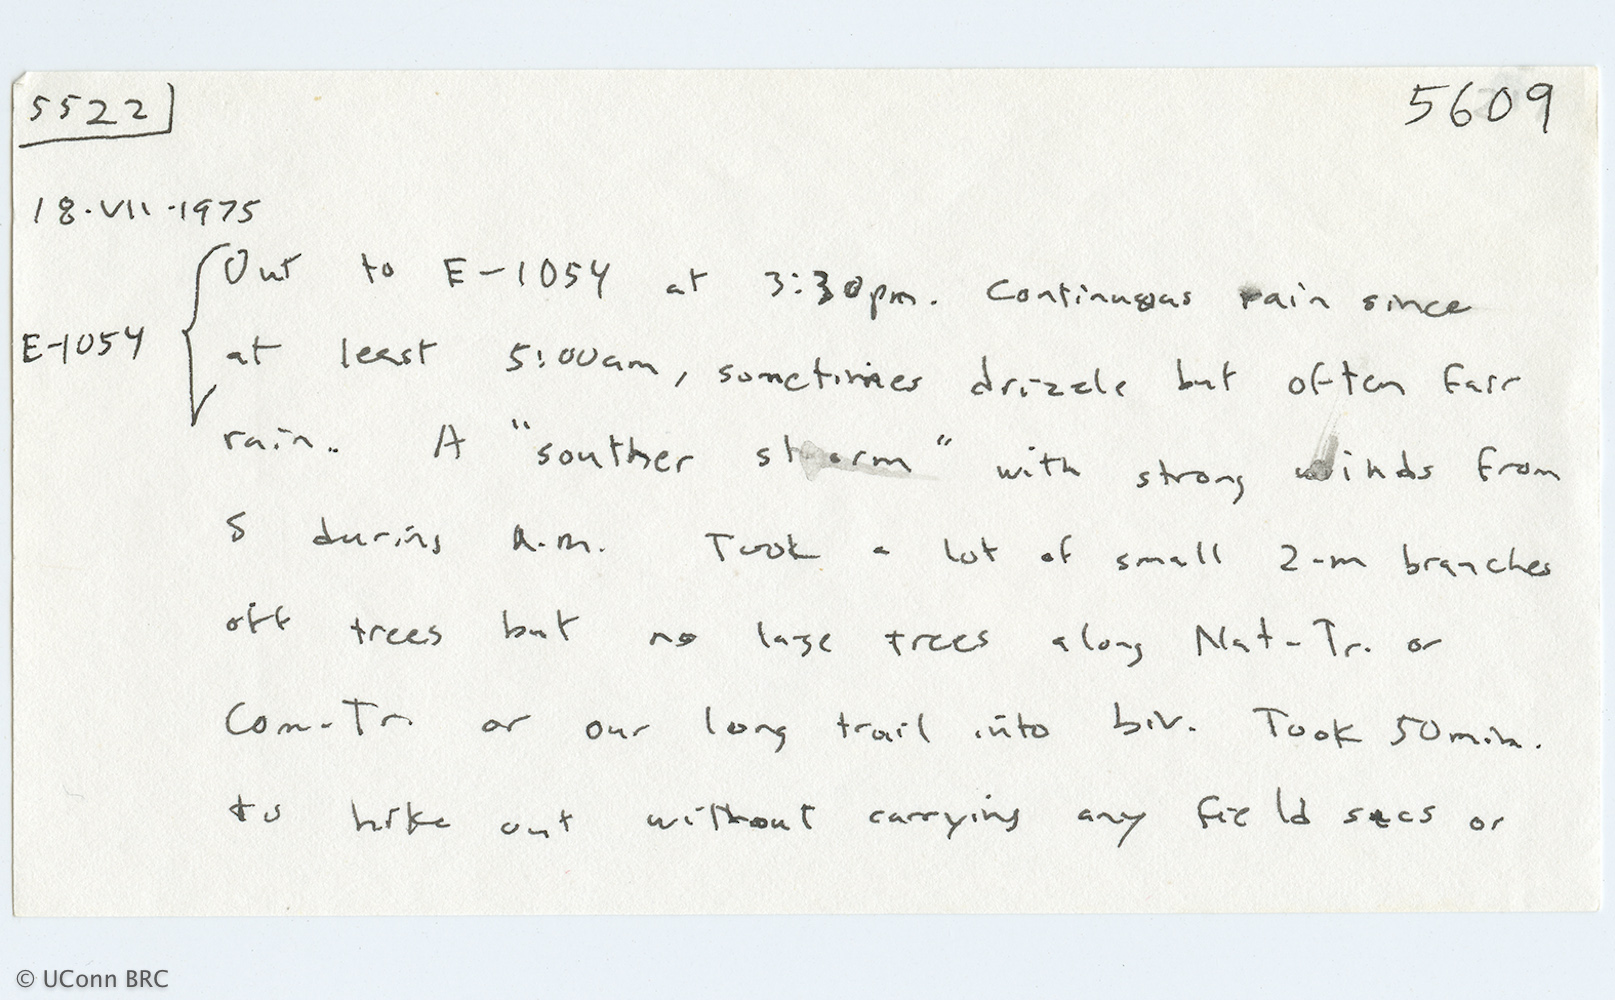 5522
5609
18·VII·1975
Out to E-1054 at 3:30pm. Continuous rain since
E-1054
at least 5:00am, sometimes drizzle but often fair
rain. A "souther storm" with strong winds from
S during a.m. Took a lot of small 2-m branches
off trees but no large trees along Nat-Tr. or
Com-Tr. or our long trail into biv. Took 50min.
to hike out without carrying any field sacs or
© UConn BRC